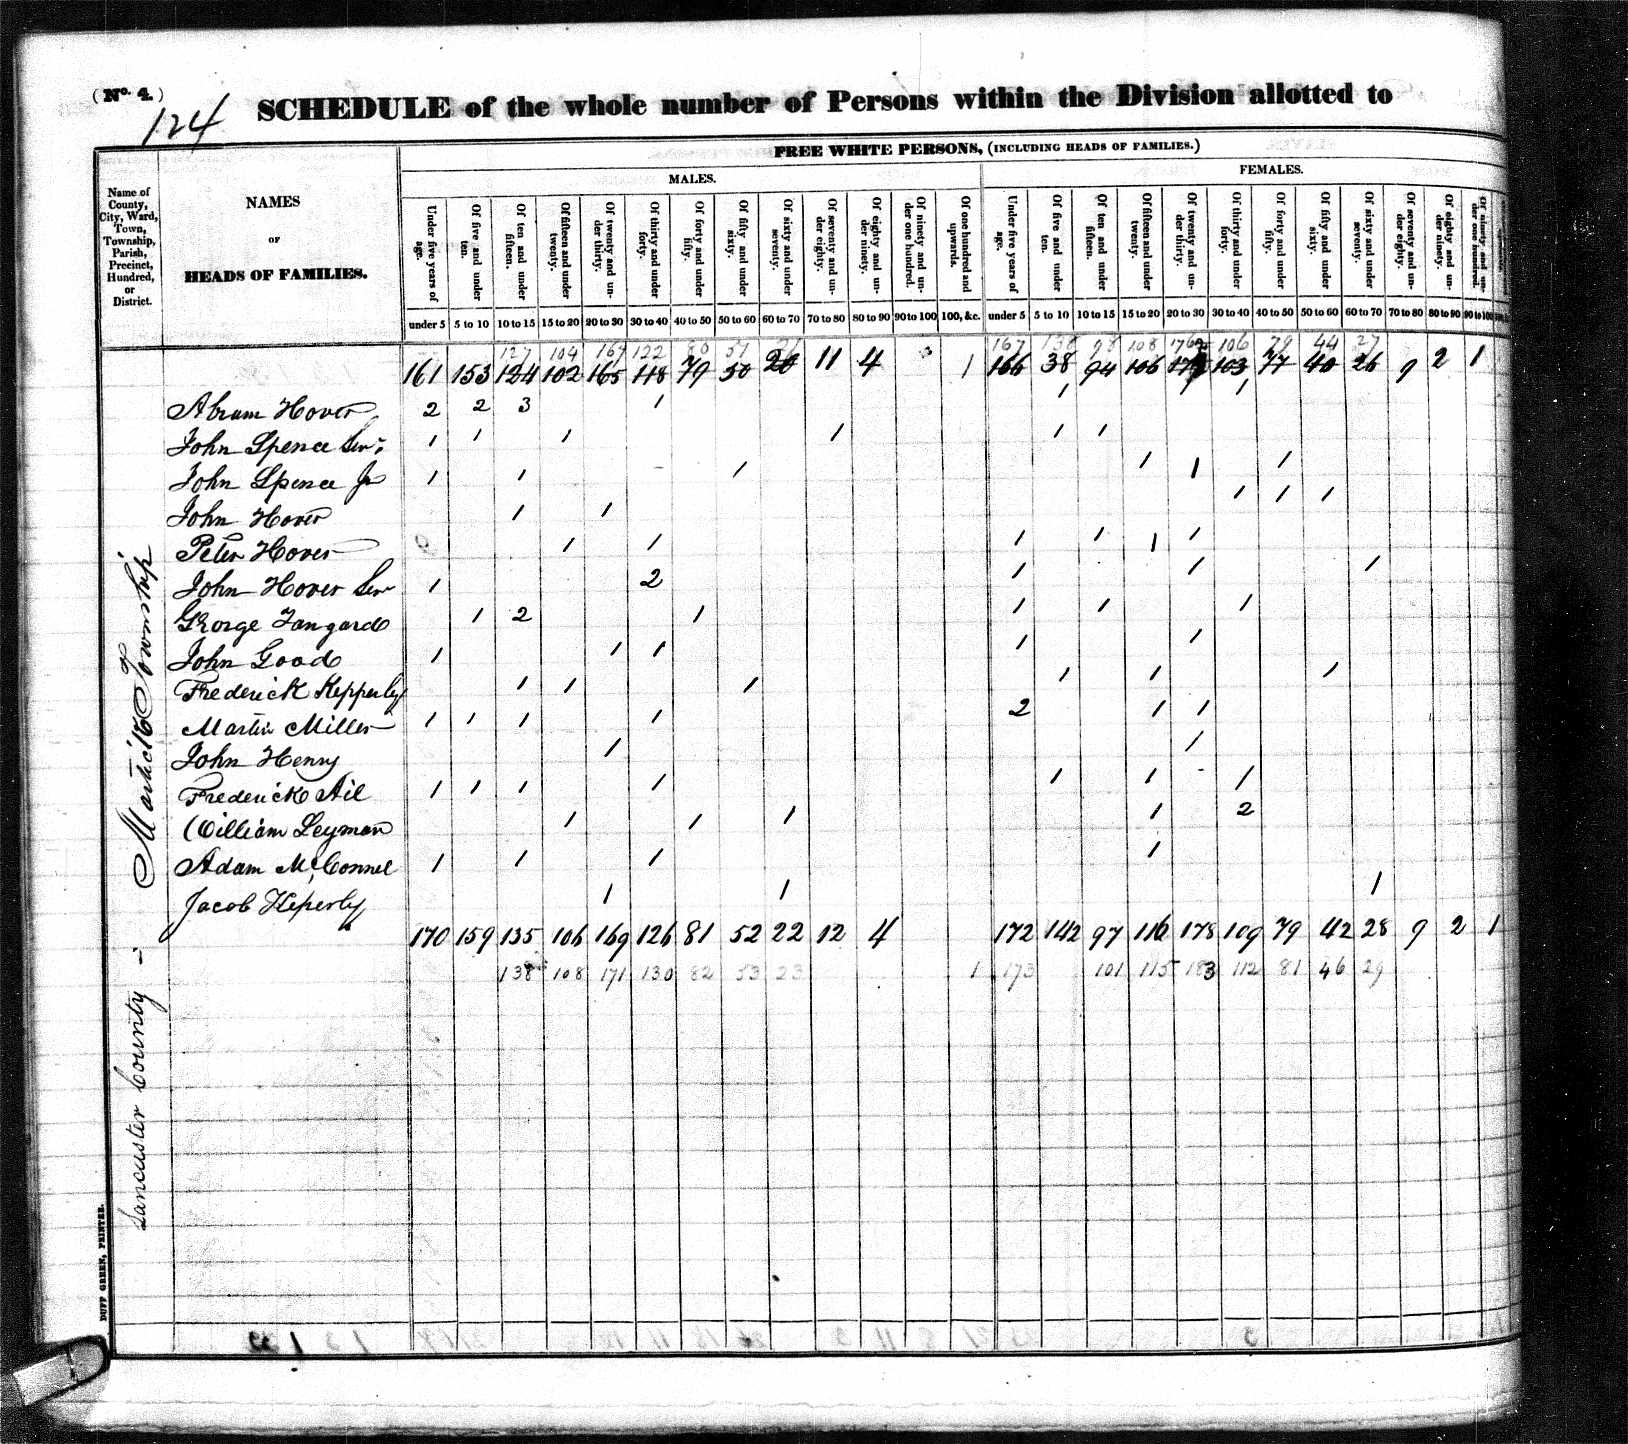 (No. 4.)
124
SCHEDULE of the whole number of Persons within the Division allotted to
FREE WHITE PERSONS, (INCLUDING HEADS OF FAMILIES.)
MALES. FEMALES.
Name of County, City, Ward, Town, Township, Parish, Precinct, Hundred, or District.
NAMES
OF
HEADS OF FAMILIES.
Under five years of age. Of five and under ten. Of ten and under fifteen. Of fifteen and under twenty. Of twenty and under thirty. Of thirty and under forty. Of forty and under fifty. Of fifty and under sixty. Of sixty and under seventy. Of seventy and under eighty. Of eighty and under ninety. Of ninety and under one hundred. Of one hundred and upwards. Under five years of age. Of five and under ten. Of ten and under fifteen. Of fifteen and under twenty. Of twenty and under thirty. Of thirty and under forty. Of forty and under fifty. Of fifty and under sixty. Of sixty and under seventy. Of seventy and under eighty. Of eighty and under ninety. Of ninety and under one hundred.
under 5 5 to 10 10 to 15 15 to 20 20 to 30 30 to 40 40 to 50 50 to 60 60 to 70 70 to 80 80 to 90 90 to 100 100, &c. under 5 5 to 10 10 to 15 15 to 20 20 to 30 30 to 40 40 to 50 50 to 60 60 to 70 70 to 80 80 to 90 90 to 100
127 104 167 122 80 51 21 167 138 98 108 176 106 79 44 27
161 153 124 102 165 118 79 50 20 11 4 1 166 38 94 106 103 77 40 26 9 2 1
Abram Hover 2 2 3 1 1 1
John Spence Senr 1 1 1 1 1 1
John Spence Jr 1 1 1 1 1 1
John Hover 1 1 1 1 1
Peter Hover 1 1 1 1 1 1
John Hover Sen 1 2 1 1 1
George Fangard 1 2 1 1 1 1
John Good 1 1 1 1 1
Frederick Kepperly 1 1 1 1 1 1
Martin Miller 1 1 1 1 2 1 1
John Henry 1 1
Frederick Ail 1 1 1 1 1 1 1
William Leyman 1 1 1 1 2
Adam McConnel 1 1 1 1
Jacob Heperly 1 1 1
170 159 135 106 169 126 81 52 22 12 4 172 142 97 116 178 109 79 42 28 9 2 1
138 108 171 130 82 53 23 1 173 101 115 183 112 81 46 29
Lancaster County - Martick Township
DUFF GREEN, PRINTER.